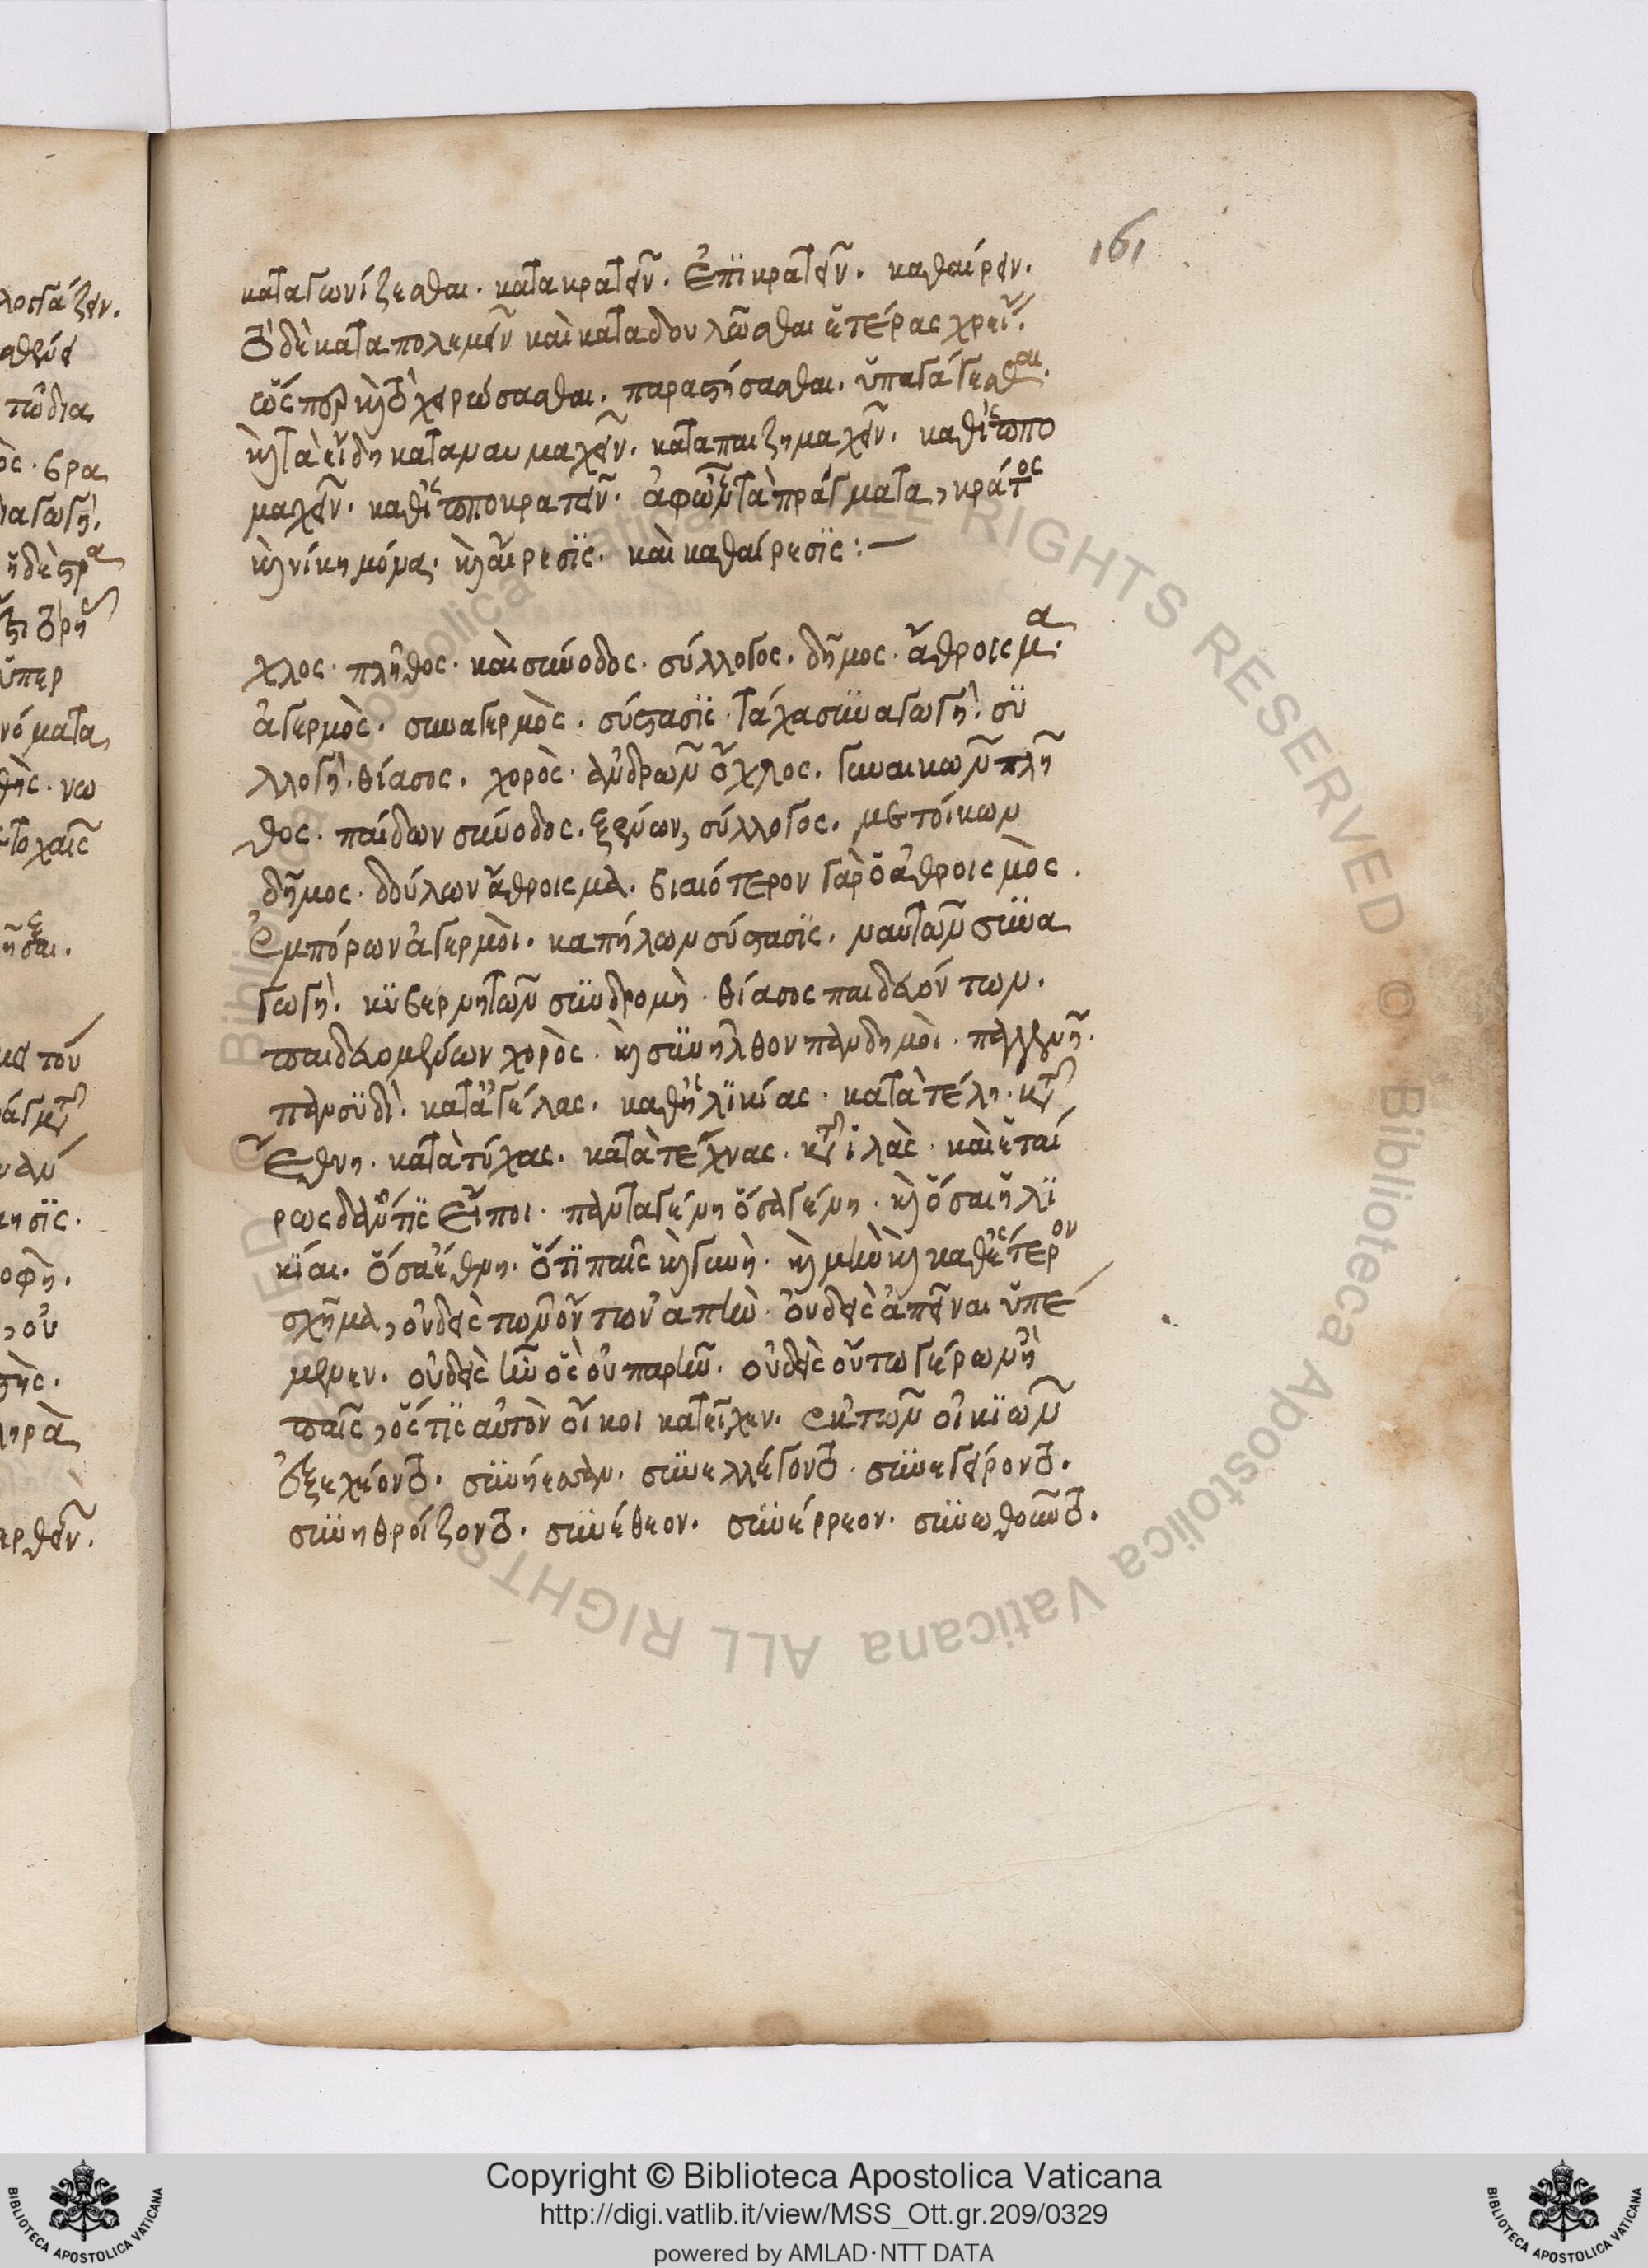 161
καταγωνίζεσθαι. κατακρατεῖν. ἐπικρατεῖν. καθαίρειν.
τὸ δὲ καταπολεμεῖν καὶ καταδουλῶσθαι ἑτέρας χρεί
ὥσπερ καὶ τὸ χειρώσασθαι. παραστήσασθαι. ὑπαγάγεσθαι.
καὶ τὰ εἴδη καταναυμαχεῖν. καταπαιζημαχεῖν. καθιππο
μαχεῖν. καθιπποκρατεῖν. ἀφ' ὧν τὰ πράγματα, κράτος
καὶ νίκη μόνα. καὶ αἵρεσις. καὶ καθαίρεσις:—
χλος. πλῆθος. καὶ σύνοδος. σύλλογος. δῆμος. ἄθροισμα.
ἀγερμὸς. συναγερμὸς. σύστασις. τάχα συναγωγή. συ
λλογή. θίασος. χορὸς. ἀνδρῶν ὄχλος. γυναικῶν πλῆ
θος. παίδων σύνοδος. ξένων, σύλλογος. μετοίκων
δῆμος. δούλων ἄθροισμα. βιαιότερον γὰρ ὁ ἀθροισμὸς.
ἐμπόρων ἀγερμὸι. καπήλων σύστασις. ναυτῶν συνα
γωγή. κυβερνητῶν συνδρομὴ. θίασος παιδευόντων.
παιδευομένων χορὸς. καὶ συνῆλθον πανδημὸι. παγγενῆ.
πανσυδὶ. κατ' ἀγέλας. καθ' ἡλικίας. κατὰ τέλη. κατ'
ἔθνη. κατὰ τύχας. κατὰ τέχνας. κατ' ἴλας. καὶ ἑταί
ρως δ' ἄν τις εἴποι. πάντα γένη ὅσα γένη. καὶ ὅσαι ἡλι
κίαι. ὅσα ἔθνη. ὅτι παῖς καὶ γυνὴ. καὶ μὴν καὶ καθ' ἕτερον
σχῆμα, οὐδεὶς τῶν ὄντων ἀπῆν. οὐδεὶς ἀπεῖναι ὑπέ
μενεν. οὐδεὶς ἦν ὃς οὐ παρῆν. οὐδεὶς οὕτω γέρων ἢ
παῖς, ὅστις αὐτὸν οἴκοι κατεῖχεν. ἐκ τῶν οἰκιῶν
ἐξεχέοντο. συνήεσαν. συνελλέγοντο. συνεγείροντο.
συνηθροίζοντο. συνέθεον. συνέρρεον. συνωθοῦντο.
Copyright © Biblioteca Apostolica Vaticana
http://digi.vatlib.it/view/MSS_Ott.gr.209/0329
powered by AMLAD·NTT DATA